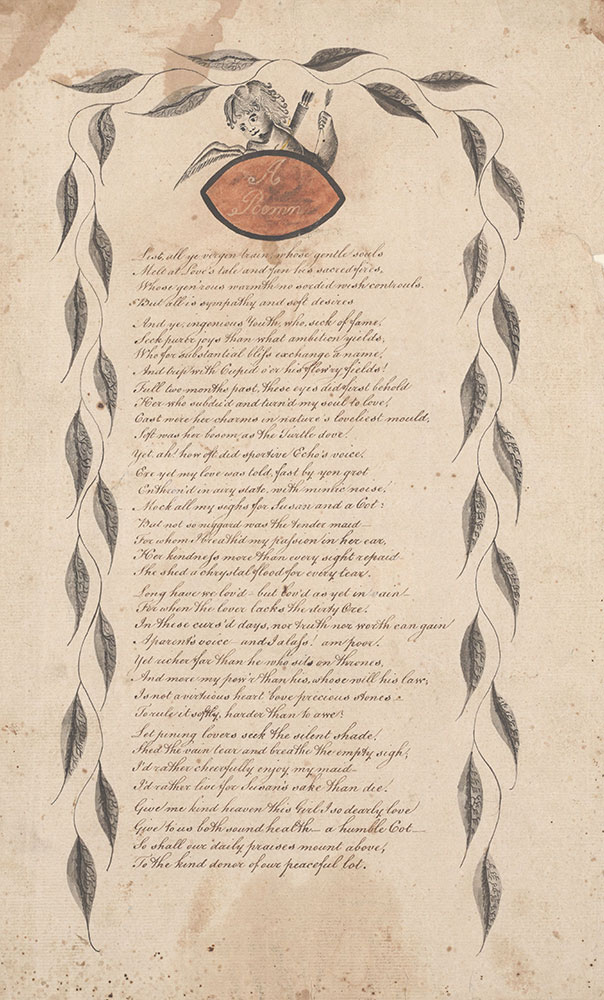 A
Poem
List, all ye virgin train, whose gentle souls
Melt at Love's tale and fan his sacred fires,
Whose gen'rous warmth no sorded wish controuls.
But all is sympathy and soft desires
And ye, ingenious Youth, who, sick of fame,
Seek purer joys than what ambition yields,
Who for substantial bliſs exchange a name,
And trip with Cupid o'er his flow'ry fields!
Full two months past, these eyes did first behold
Her who subdu'd and turn'd my soul to love!
Cast were her charms in nature's loveliest mould,
Soft was her bosom as the Turtle dove!
Yet ah! how oft did sportive Echo's voice,
Ere yet my love was told, fast by yon grot
Enthron'd in airy state, with mimic noise!
Mock all my sighs for Susan and a Cot:
But not so niggard was the tender maid—
For whom I breath'd my paſsion in her ear,
Her kindneſs more than every sight repaid
She shed a chrystal flood for every tear.
Long have we lov'd— but lov'd as yet in vain!
For when the lover lacks the dirty Ore.
In these curs'd days, nor truth nor worth can gain
A parent's voice— and I alaſs! am poor.
Yet richer far than he who sits on thrones,
And more my pow'r than his, whose will his law,
Is not a virtuous heart 'bove precious stones
To rule it softly, harder than to awe?
Let pining lovers seek the silent shade!
Shed the vain tear and breathe the empty sigh,
I'd rather cheerfully enjoy my maid—
I'd rather live for Susan's sake than die!
Give me kind heaven this Girl I so dearly love
Give to us both sound health— a humble Cot—
So shall our daily praises mount above,
To the kind donor of our peaceful lot.